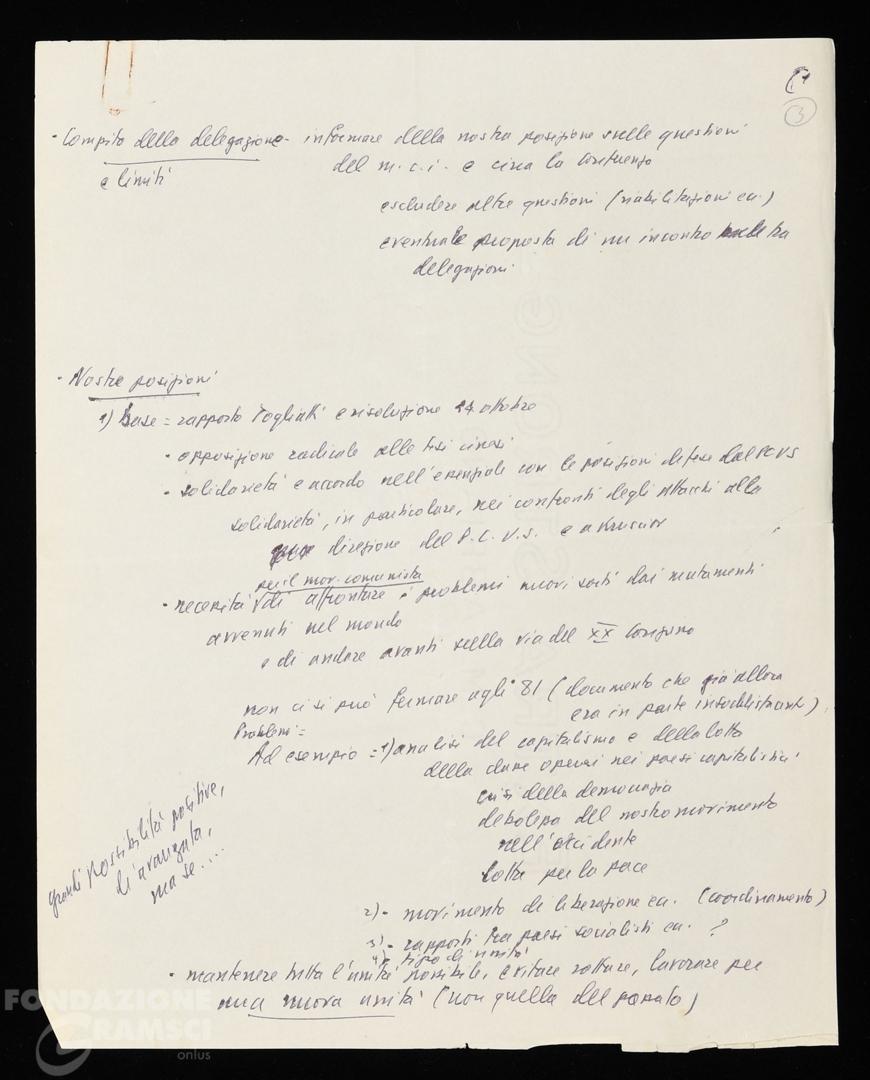 3
· Compito della delegazione - informare della nostra posizione sulle questioni
e limiti
del m.c.i. e circa la conferenza
escludere altre questioni (riabilitazioni ecc.)
eventuale proposta di un incontro tra
delegazioni
· Nostre posizioni
1) base = rapporto Togliatti e risoluzione 24 ottobre
· opposizione radicale alle tesi cinesi
· solidarietà e accordo nell'essenziale con le posizioni difese dal PCUS
solidarietà, in particolare, nei confronti degli attacchi alla
direzione del P.C.U.S. e a Krusciov
per il mov. comunista
· necessità di affrontare i problemi nuovi sorti dai mutamenti
avvenuti nel mondo
e di andare avanti sulla via del XX Congresso
non ci si può fermare agli 81 (documento che già allora
era in parte insoddisfacente)
Problemi =
Ad esempio = 1) analisi del capitalismo e della lotta
della classe operaia nei paesi capitalistici
crisi della democrazia
debolezza del nostro movimento
nell'occidente
lotta per la pace
grandi possibilità positive,
di avanzata,
ma se....
2) - movimento di liberazione ecc. (coordinamento)
3) - rapporti tra paesi socialisti ecc. ?
4) tipo di unità
· mantenere tutta l'unità possibile, evitare rotture, lavorare per
una nuova unità (non quella del passato)
FONDAZIONE
GRAMSCI
onlus